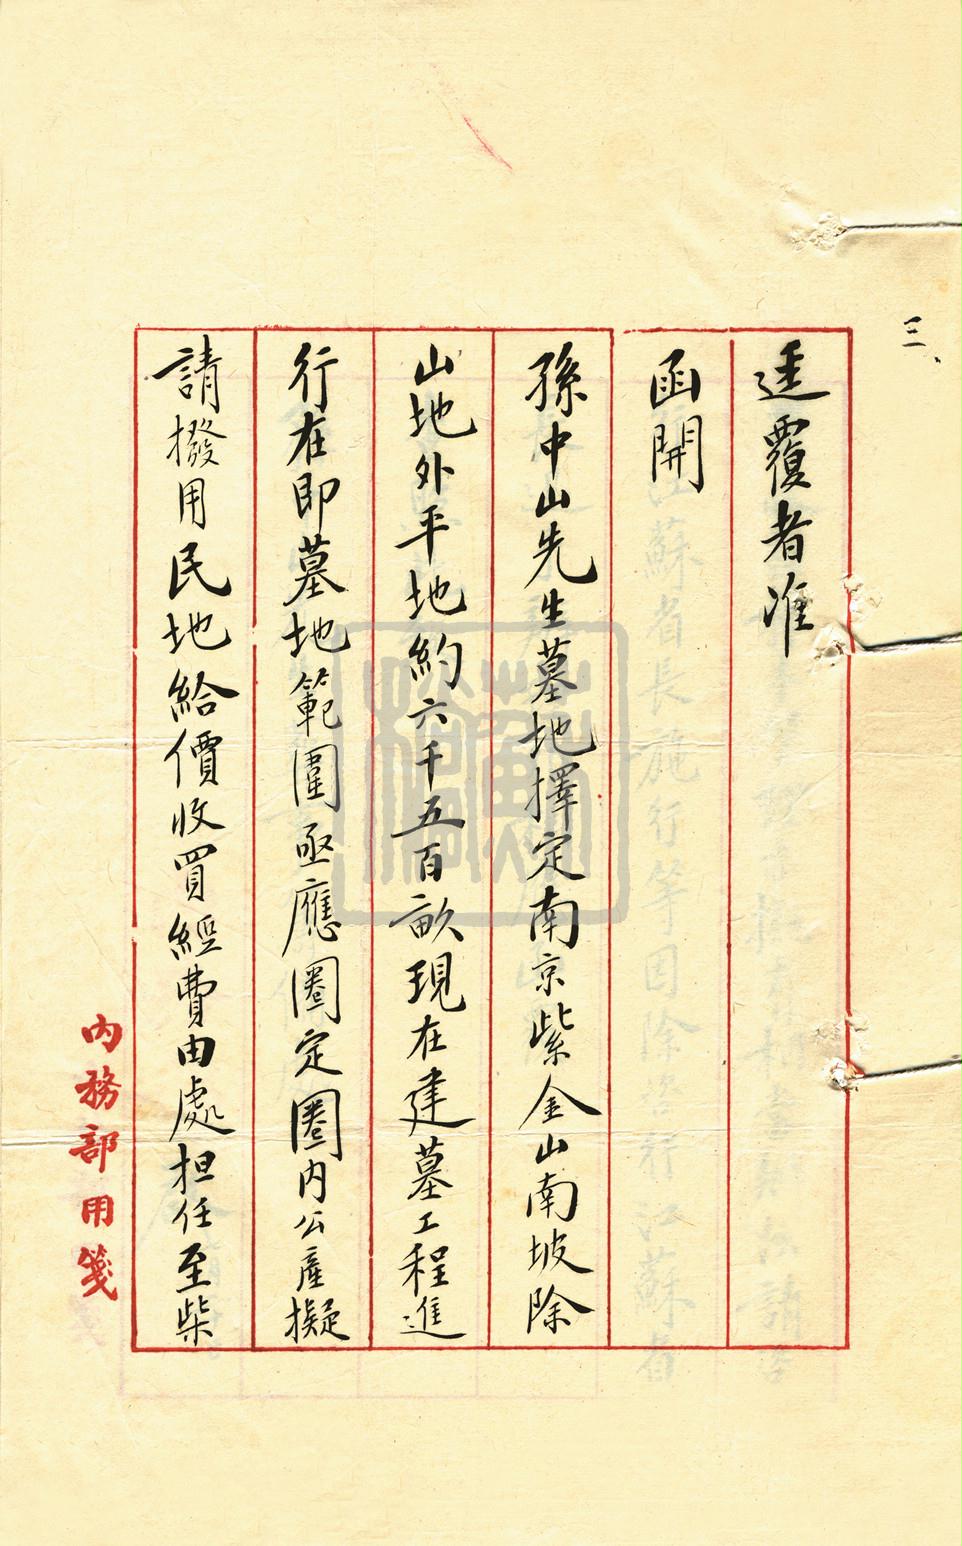 三、
逕覆者准
函開
孫中山先生墓地擇定南京紫金山南坡除
山地外平地約六千五百畝現在建墓工程進
行在即墓地範圍亟應圈定圈內公產擬
請撥用民地給價收買經費由處担任至柴
內務部用箋